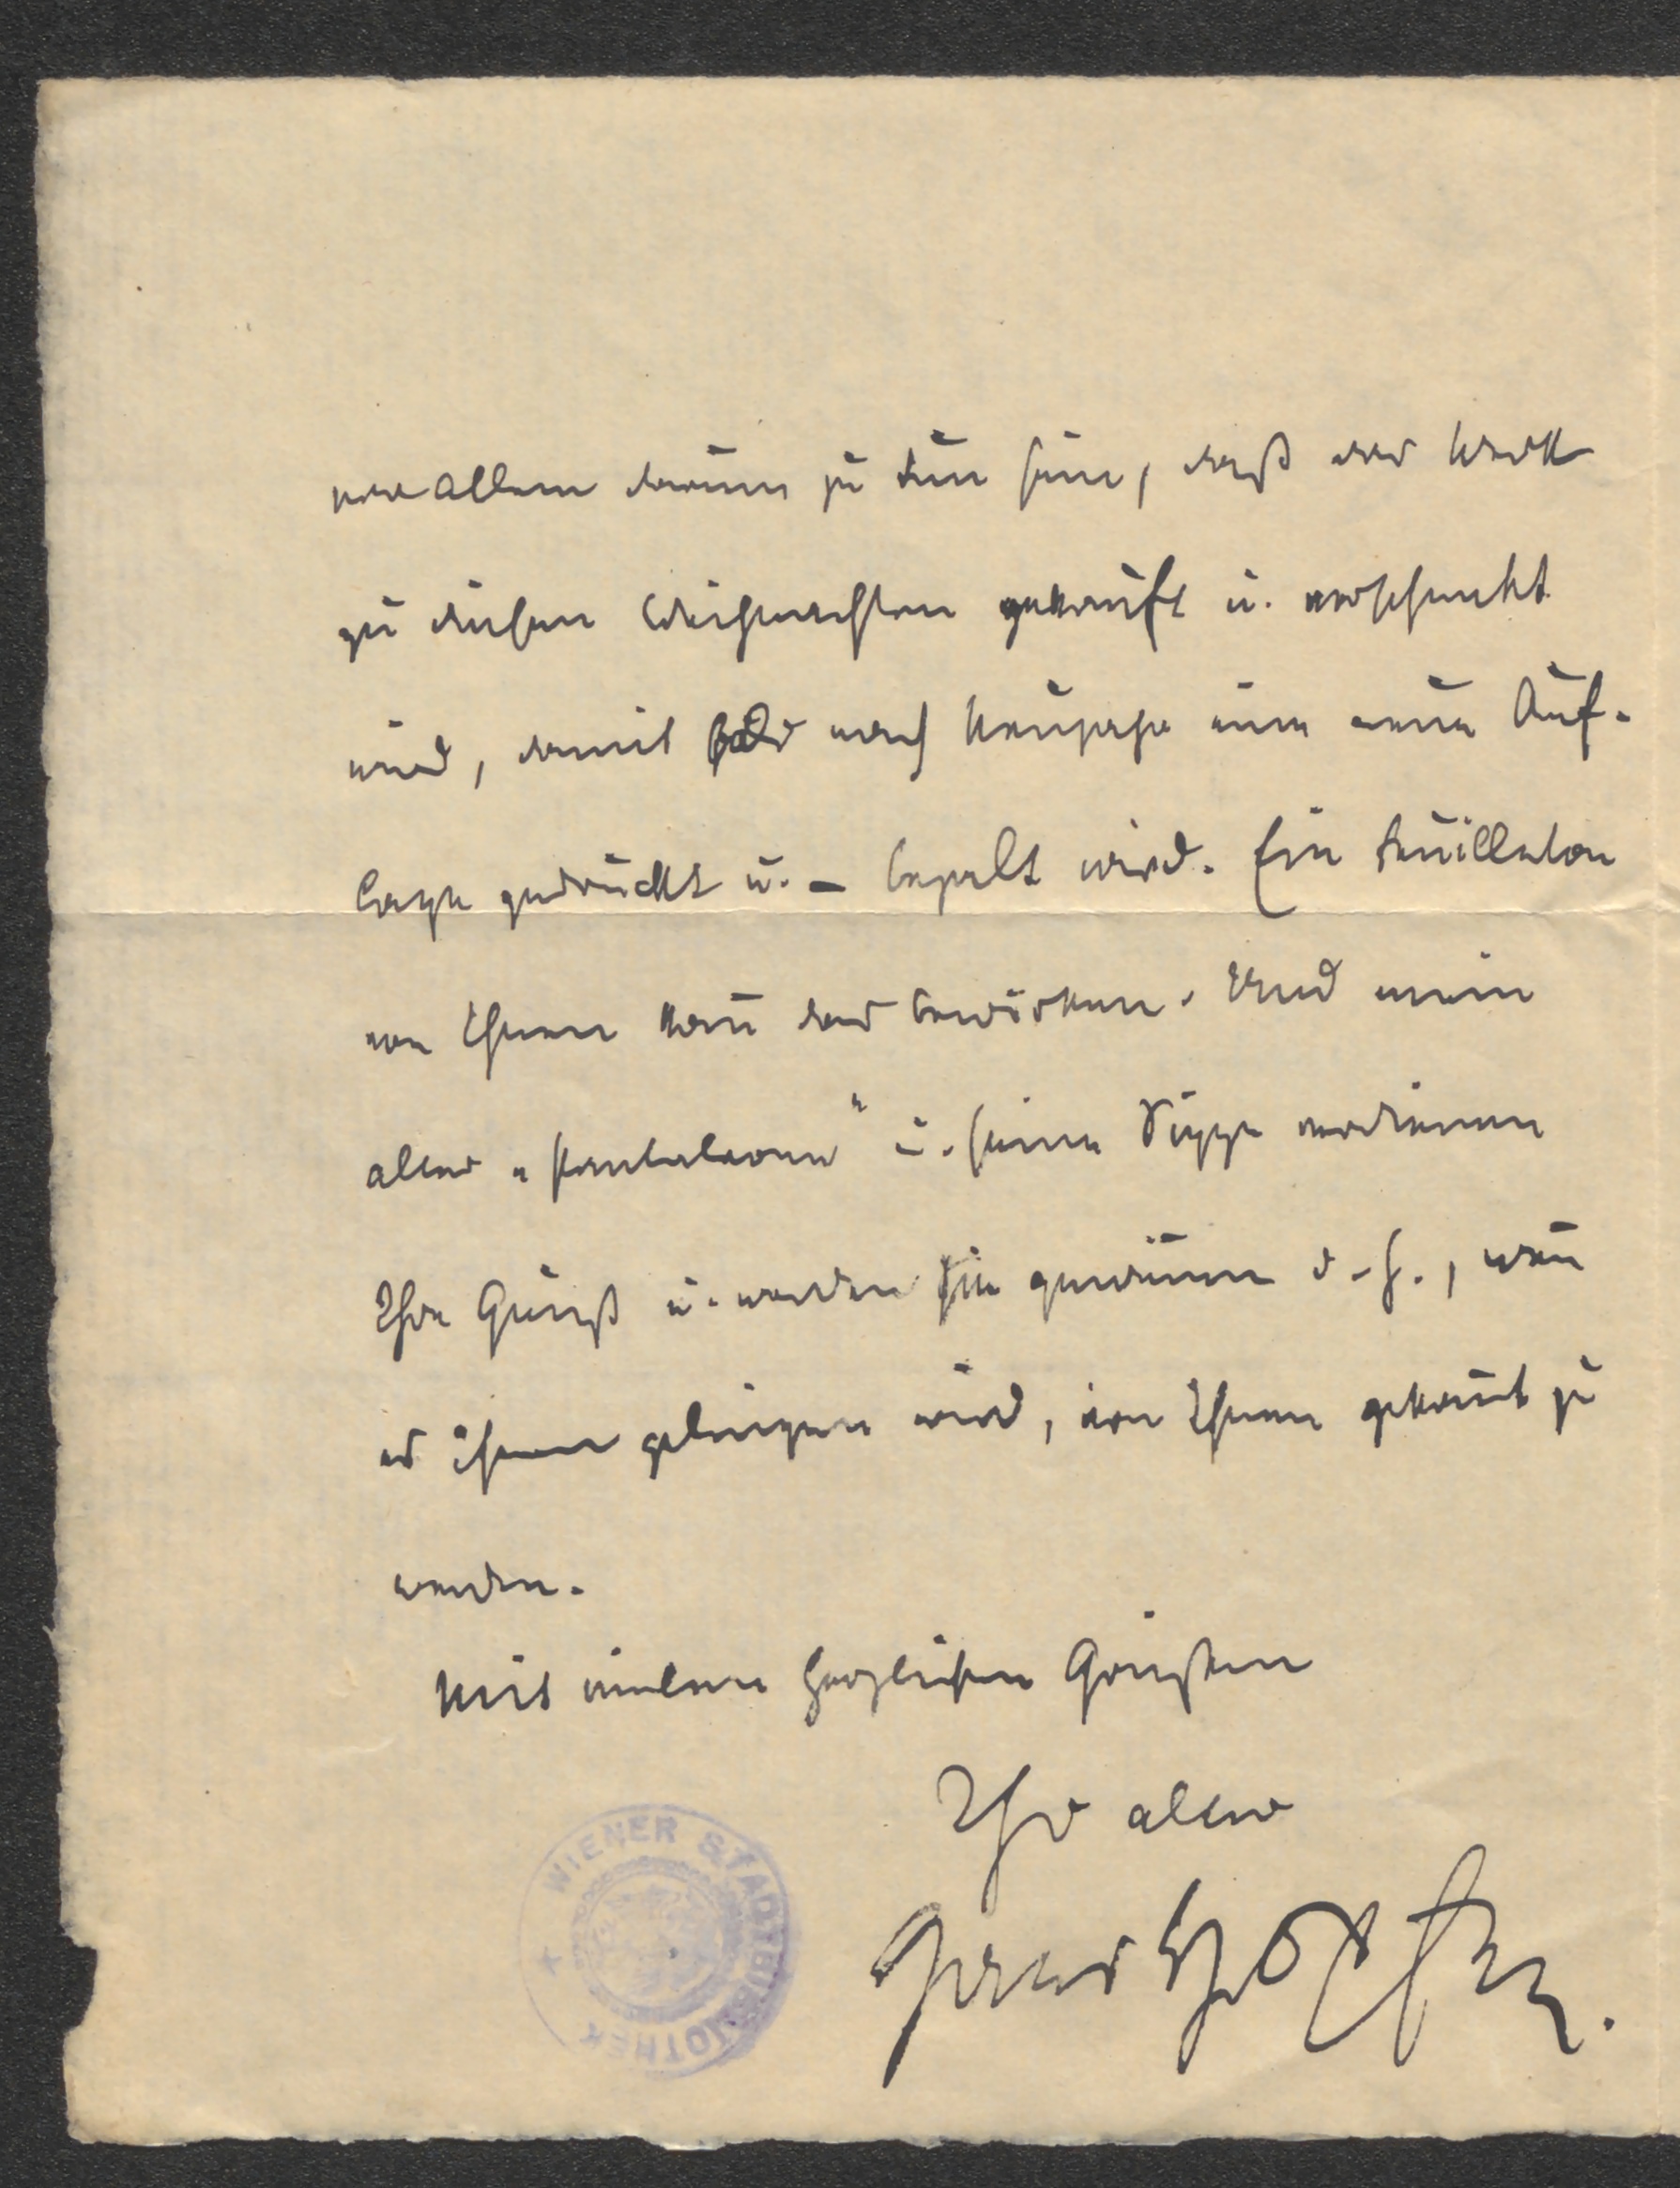 vor allem darum zu tun sein, daß das Werk
zu diesen Weihnachten gekauft u. verschenkt
wird, damit bald nach Neujahr eine neue Auf-
lage gedruckt u. – bezalt wird. Ein Feuilleton
von Ihnen kan̄ das bewirken. Und mein
alter „Pantaleone“ u. seine Sippe verdienen
Ihre Gunst u. werden sie gewinnen d. h., wen̄
es ihnen gelingen wird, von Ihnen gekan̄t zu
werden.
Mit vielen herzlichen Grüßen
Ihr alter
Hans
WIENER STADTBIBLIOTHEK